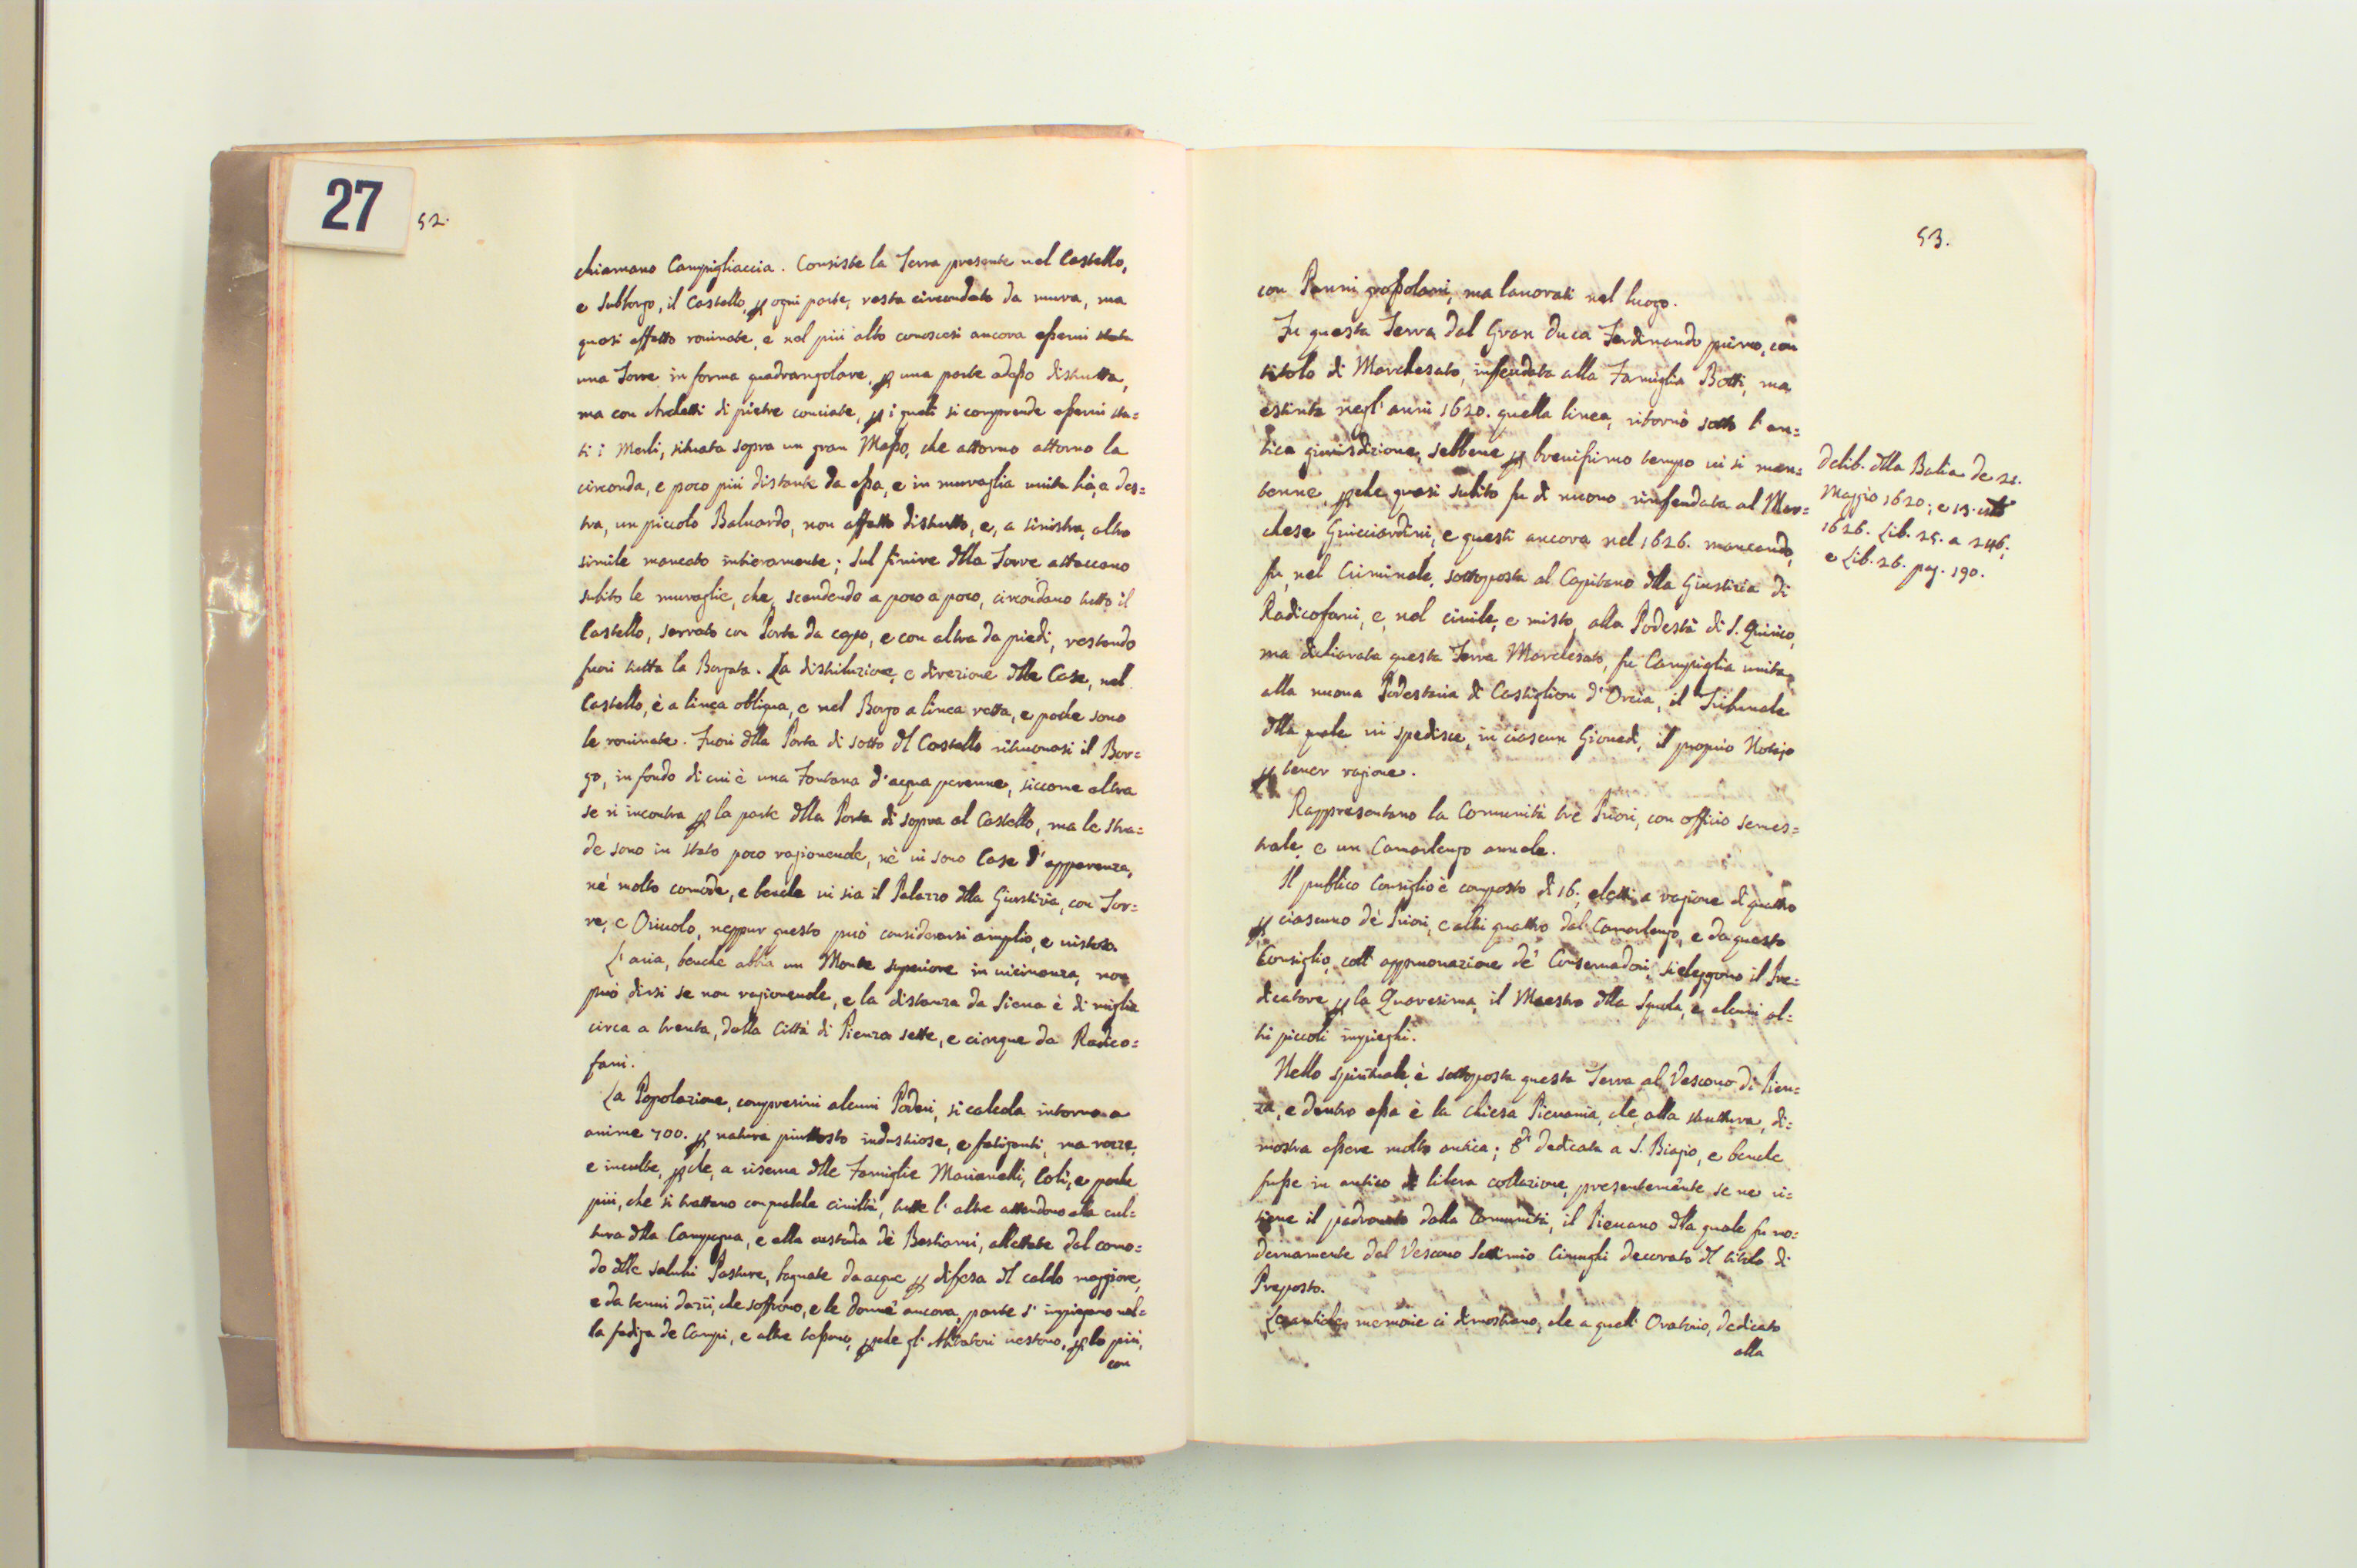 27
52.
chiamano Campigliaccia. Consiste la Terra presente nel Castello,
e Subborgo, il Castello, ꝑ ogni parte, resta circondato da mura, ma
quasi affatto rovinate, e nel più alto conoscesi ancora esservi stata
una Torre in forma quadrangolare, ꝑ una parte adesso distrutta,
ma con Archetti di pietre conciate, ꝑ i quali si comprende esservi sta=
ti i Merli, situata sopra un gran Masso, che attorno attorno la
circonda, e poco più distante da essa, e in muraglia unita hà, a des=
tra, un piccolo Baluardo, non affatto distrutto, e, a sinistra, altro
simile mancato intieramente; Sul finire dlla Torre attaccano
subito le muraglie, che, scendendo a poco a poco, circondano tutto il
Castello, serrato con Porta da capo, e con altra da piedi, restando
fuori tutta la Borgata. La distribuzione, e direzione dlle Case, nel
Castello, è a linea obliqua, e nel Borgo a linea retta, e poche sono
le rovinate. Fuori dlla Porta di sotto dl Castello ritrovasi il Bor=
go, in fondo di cui è una Fontana d'acqua perenne, siccome altra
se ne incontra ꝑ la parte dlla Porta di sopra al Castello, ma le stra=
de sono in stato poco ragionevole, nè vi sono Case d'apparenza,
nè molto comode, e benche vi sia il Palazzo dlla Giustizia, con Tor=
re, e Oriuolo, neppur questo può considerarsi amplio, e vistoso.
L'aria, benche abbia un Monte superiore in vicinanza, non
può dirsi se non ragionevole, e la distanza da Siena è di miglia
circa a trenta, dalla Città di Pienza sette, e cinque da Radico=
fani.
La Popolazione, compresivi alcuni Poderi, si calcola intorno a
anime 700. ꝑ natura piuttosto industriose, e fatiganti, ma rozze,
e inculte, ꝑche, a riserva dlle Famiglie Marianelli, Coli, e poche
più, che si trattano con qualche civiltà, tutte l'altre attendono alla cul=
tura dlla Campagna, e alla custodia dè Bestiami, allettate dal como=
do dlle salubri Pasture, bagnate da acque ꝑ difesa dl caldo maggiore,
e da tenui dazii, che soffrono, e le donne ancora, parte s'impiegano nel=
la fadiga de Campi, e altre tessono, ꝑche gl'Abitatori vestono, ꝑ lo più,
con
53.
con Panni grossolani, ma lavorati nel luogo.
Fu questa Terra dal Gran Duca Ferdinando primo, con
titolo di Marchesato, infeudata alla Famiglia Botti, ma
estinta negl'anni 1620. quella linea, ritornò sotto l'an=
tica giurisdizione, sebbene ꝑ brevissimo tempo vi si man=
tenne, ꝑche quasi subito fu di nuovo rinfeudata al Mar=
chese Guicciardini, e questi ancora nel 1626. mancando,
fu, nel Criminale, sottoposta al Capitano dlla Giustizia di
Radicofani, e, nel civile, e misto, alla Podestà di S. Quirico,
ma dichiarata questa Terra Marchesato, fu Campiglia unita
alla nuova Podesteria di Castiglion d'Orcia, il Tribunale
dlla quale vi spedisce, in ciascun Giovedì, il proprio Notajo
ꝑ tener ragione.
Rappresentano la Comunità trè Priori, con officio semes=
trale, e un Camarlengo annale.
Il publico Consiglio è composto di 16. eletti, a ragione di quattro
ꝑ ciascuno dè Priori, e altri quattro dal Camarlengo, e da questo
Consiglio, coll'approvazione de' Conservadori, si eleggono il Pre=
dicatore ꝑ la Quaresima, il Maestro dlla Squola, e alcuni al=
tri piccoli impieghi.
Nello spirituale è sottoposta questa Terra al Vescovo di Pien=
za, e dentro essa è la Chiesa Pievania, che, alla struttura, di=
mostra essere molto antica; È dedicata a S. Biagio, e benche
fusse in antico di libera collazione, presentemente se ne ri=
tiene il padronato dalla Comunità, il Pievano dlla quale fu mo=
dernamente dal Vescovo Settimio Cinughi decorato dl titolo di
Preposto.
Le antiche memorie ci dimostrano, che a quell'Oratorio, dedicato
alla
Delib. dlla Balia de 21.
Maggio 1620; e 13.
1626. Lib. 25. a 246;
e Lib. 26. pag. 190.